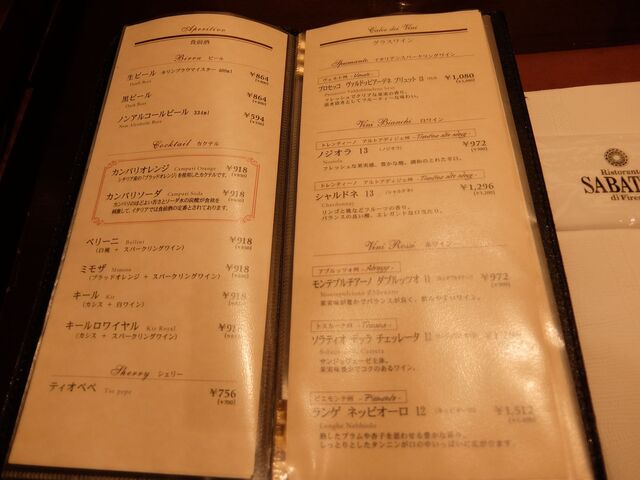 Aperitivo
食前酒
Birra ビール
生ビール キリンブラウマイスター ¥864
Draft Beer
黒ビール ¥864
Dark Beer
ノンアルコールビール 334ml ¥594
Non Alcoholic Beer
Cocktail カクテル
カンパリオレンジ Campari Orange ¥918
シチリア産の「ブラッドオレンジ」を使用したカクテルです。
カンパリソーダ Campari Soda ¥918
カンパリのほどよい苦さとソーダ水の炭酸が食欲を
刺激して、イタリアでは食前酒の定番とされております。
ベリーニ Bellini ¥918
(白桃 + スパークリングワイン)
ミモザ Mimosa ¥918
(ブラッドオレンジ + スパークリングワイン)
キール Kir ¥918
(カシス + 白ワイン)
キールロワイヤル Kir Royal
(カシス + スパークリングワイン)
Sherry シェリー
ティオペペ Tio pepe ¥756
(¥700)
Calice dei Vini
グラスワイン
Spumante イタリアンスパークリングワイン
ヴェネト州 - Veneto -
プロセッコ ヴァルドッビアーデネ ブリュット ¥1,080
フレッシュでクリアな果実の香り。
Vini Bianchi 白ワイン
トレンティーノ アルトアディジェ州
ノジオラ 13 (ノジオラ) ¥972
Nosiola
フレッシュな果実感、豊かな酸、調和のとれた辛口。
トレンティーノ アルトアディジェ州
シャルドネ 13 (シャルドネ) ¥1,296
(¥1,200)
Chardonnay
リンゴと桃などフルーツの香り。
バランスの良い酸、エレガントな口当たり。
Vini Rossi 赤ワイン
アブルッツオ州 - Abruzzo -
モンテプルチアーノ ダブルッツオ ¥972
果実味が豊かでバランスが良く、飲みやすいワイン。
トスカーナ州 - Toscana -
ソラティオ デッラ チェッレータ
サンジョヴェーゼ主体。
果実味豊かでコクのあるワイン。
ピエモンテ州 - Piemonte -
ランゲ ネッビオーロ 12 (ネッビオーロ) ¥1,512
Langhe Nebbiolo
熟したプラムや杏子を思わせる豊かな香り。
しっとりとしたタンニンが口の中いっぱいに広がります。
Ristorante
SABAT
di Fire